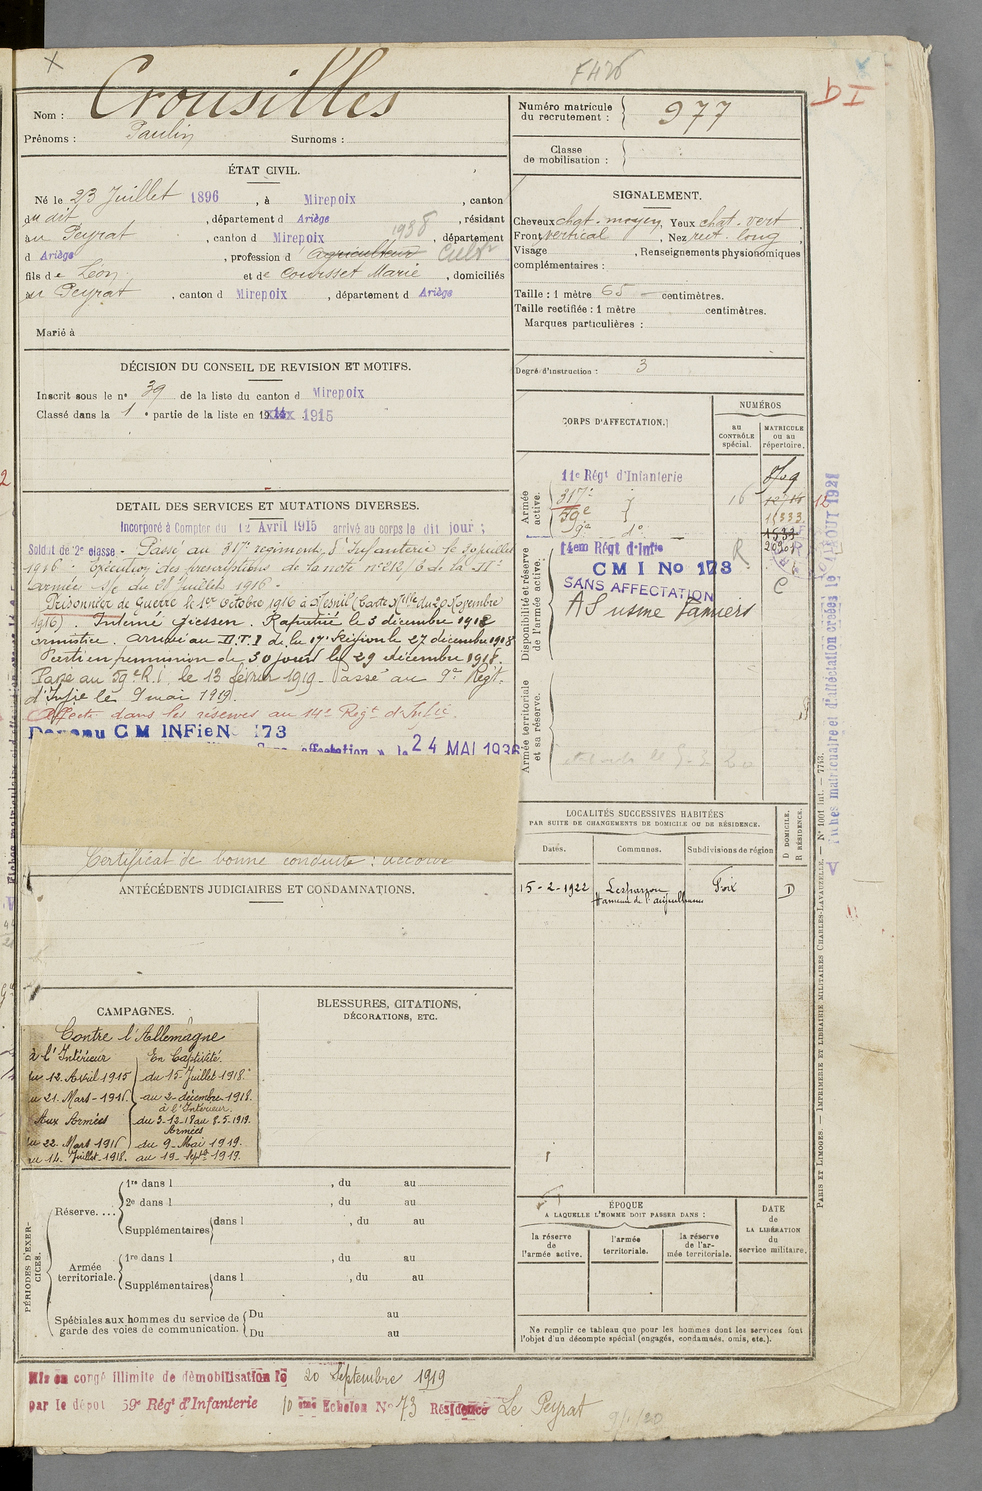 F426
DI
Nom : Crousilles
Prénoms : Paulin Surnoms :
Numéro matricule
du recrutement : 977
Classe
de mobilisation :
ÉTAT CIVIL.
Né le 23 Juillet 1896 , à Mirepoix , canton
du dit , département d Ariège , résidant
au Peyrat , canton d Mirepoix 1938 , département
d Ariège , profession d agriculteur Cultr
fils de Léon et de Cousset Marie , domiciliés
au Peyrat , canton d Mirepoix , département d Ariège
Marié à
SIGNALEMENT.
Cheveux chat. moyen, Yeux chat. vert
Front vertical , Nez rect. long
Visage , Renseignements physionomiques
complémentaires :
Taille : 1 mètre 65 centimètres.
Taille rectifiée : 1 mètre centimètres.
Marques particulières :
Degré d'instruction : 3
DÉCISION DU CONSEIL DE REVISION ET MOTIFS.
Inscrit sous le n° 39 de la liste du canton d Mirepoix
Classé dans la 1e partie de la liste en 19 1915
CORPS D'AFFECTATION.
NUMÉROS
au
CONTRÔLE
spécial.
MATRICULE
ou au
répertoire.
Armée
active.
11e Régt d'Infanterie
317e
59e
9e do
16
11333
1533
Disponibilité et réserve
de l'armée active.
14em Régt d'Infie
CMI No 173
SANS AFFECTATION
R
C
AS usine Pamiers
Armée territoriale
et sa réserve.
DETAIL DES SERVICES ET MUTATIONS DIVERSES.
Incorporé à Compter du 12 Avril 1915 arrivé au corps le dit jour ;
Soldat de 2e classe - Passé au 317e régiment d'Infanterie le 20 juillet
1916 - exécution des prescriptions de la note n° 212/6 de la IIe
armée s/c du 21 juillet 1916 -
Prisonnier de Guerre le 1er octobre 1916 à Mesnil (Carte Mlle du 20 Novembre
1916). Interné Giessen. Rapatrié le 3 décembre 1918
armistice, arrivé au D.T.I de la 17e Région le 27 décembre 1918
Parti en permission de 30 jours le 29 décembre 1918.
Passé au 59e R.I. le 13 février 1919 - Passé au 9e Régt
d'Infie le 9 mai 1919.
Affecté dans les réserves au 14e Régt d'Infie.
CM INFie No 173
affectation » le 24 MAI 1936
Certificat de bonne conduite : accordé
ANTÉCÉDENTS JUDICIAIRES ET CONDAMNATIONS.
LOCALITÉS SUCCESSIVES HABITÉES
PAR SUITE DE CHANGEMENTS DE DOMICILE OU DE RÉSIDENCE.
Dates.
Communes.
Subdivisions de région
D DOMICILE.
R RÉSIDENCE.
15-2-1922 Lesparrou Foix D
Hameau de l'aiguillanes
CAMPAGNES.
Contre l'Allemagne
à l'Intérieur
du 12 Avril 1915
au 21 Mars - 1916
Aux Armées
du 22 Mars 1916
au 14 Juillet - 1918.
En Captivité.
du 15 Juillet 1918.
au 2 décembre 1918.
à l'Intérieur.
du 3-12-18 au 8-5-1919.
Armées
du 9 Mai 1919.
au 19 Septbre 1919.
BLESSURES, CITATIONS,
DÉCORATIONS, ETC.
PÉRIODES D'EXERCICES.
Réserve....
1re dans l , du au
2e dans l , du au
Supplémentaires dans l , du au
Armée
territoriale.
1re dans l , du au
Supplémentaires dans l , du au
Spéciales aux hommes du service de
garde des voies de communication.
Du au
Du au
ÉPOQUE
A LAQUELLE L'HOMME DOIT PASSER DANS :
la réserve
de
l'armée active.
l'armée
territoriale.
la réserve
de l'ar-
mée territoriale.
DATE
de
LA LIBÉRATION
du
service militaire.
Ne remplir ce tableau que pour les hommes dont les services font
l'objet d'un décompte spécial (engagés, condamnés, omis, etc.).
Mis en congé illimité de démobilisation le 20 Septembre 1919
par le dépôt 59e Régt d'Infanterie 10 ème Echelon No 73 Résidence Le Peyrat
PARIS ET LIMOGES. — IMPRIMERIE ET LIBRAIRIE MILITAIRES CHARLES-LAVAUZELLE. — N° 1001 int. — 7743.